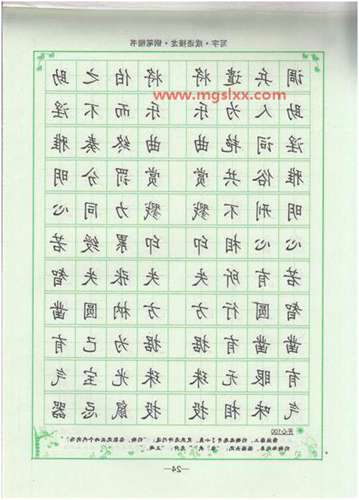 写字·成语接龙·钢笔楷书
调兵遣将将伯之助
www.mgslxx.com
助人为乐乐而不淫
淫词艳曲曲终奏雅
雅俗共赏赏罚分明
明刑不戮戮力同心
心心相印印累绶若
若有所失失张失智
智圆行方方枘圆凿
凿凿有据据为己有
有眼无珠珠光宝气
气味相投投鼠忌器
开心100
—24—